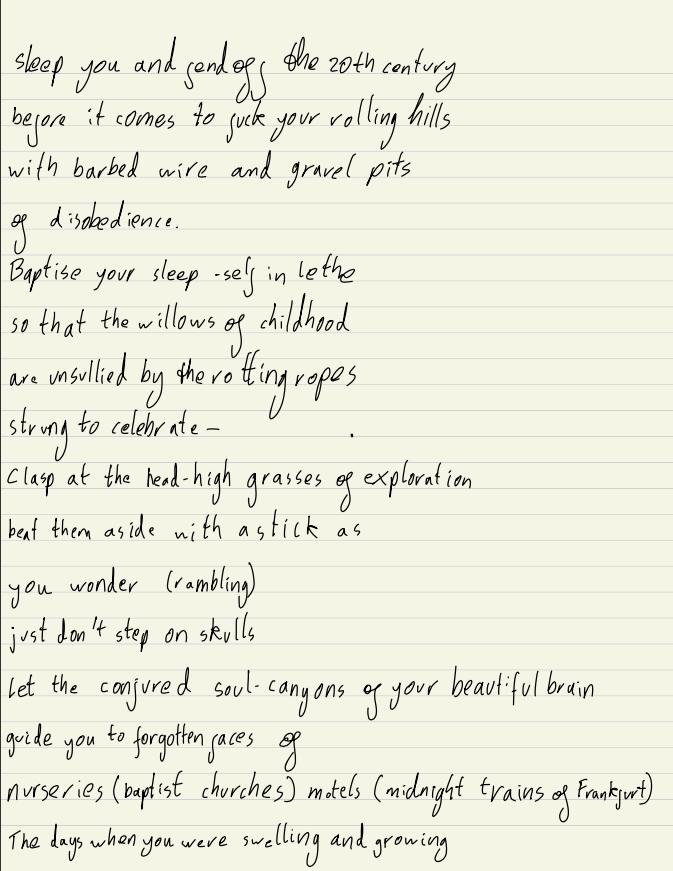 sleep you and fend off the 20th century
before it comes to fuck your rolling hills
with barbed wire and gravel pits
of disobedience.
Baptise your sleep-self in lethe
so that the willows of childhood
are unsullied by the rotting ropes
strung to celebrate –
Clasp at the head-high grasses of exploration
beat them aside with a stick as
you wonder (rambling)
just don't step on skulls
Let the conjured soul-canyons of your beautiful brain
guide you to forgotten faces of
nurseries (baptist churches) motels (midnight trains of Frankfurt)
The days when you were swelling and growing